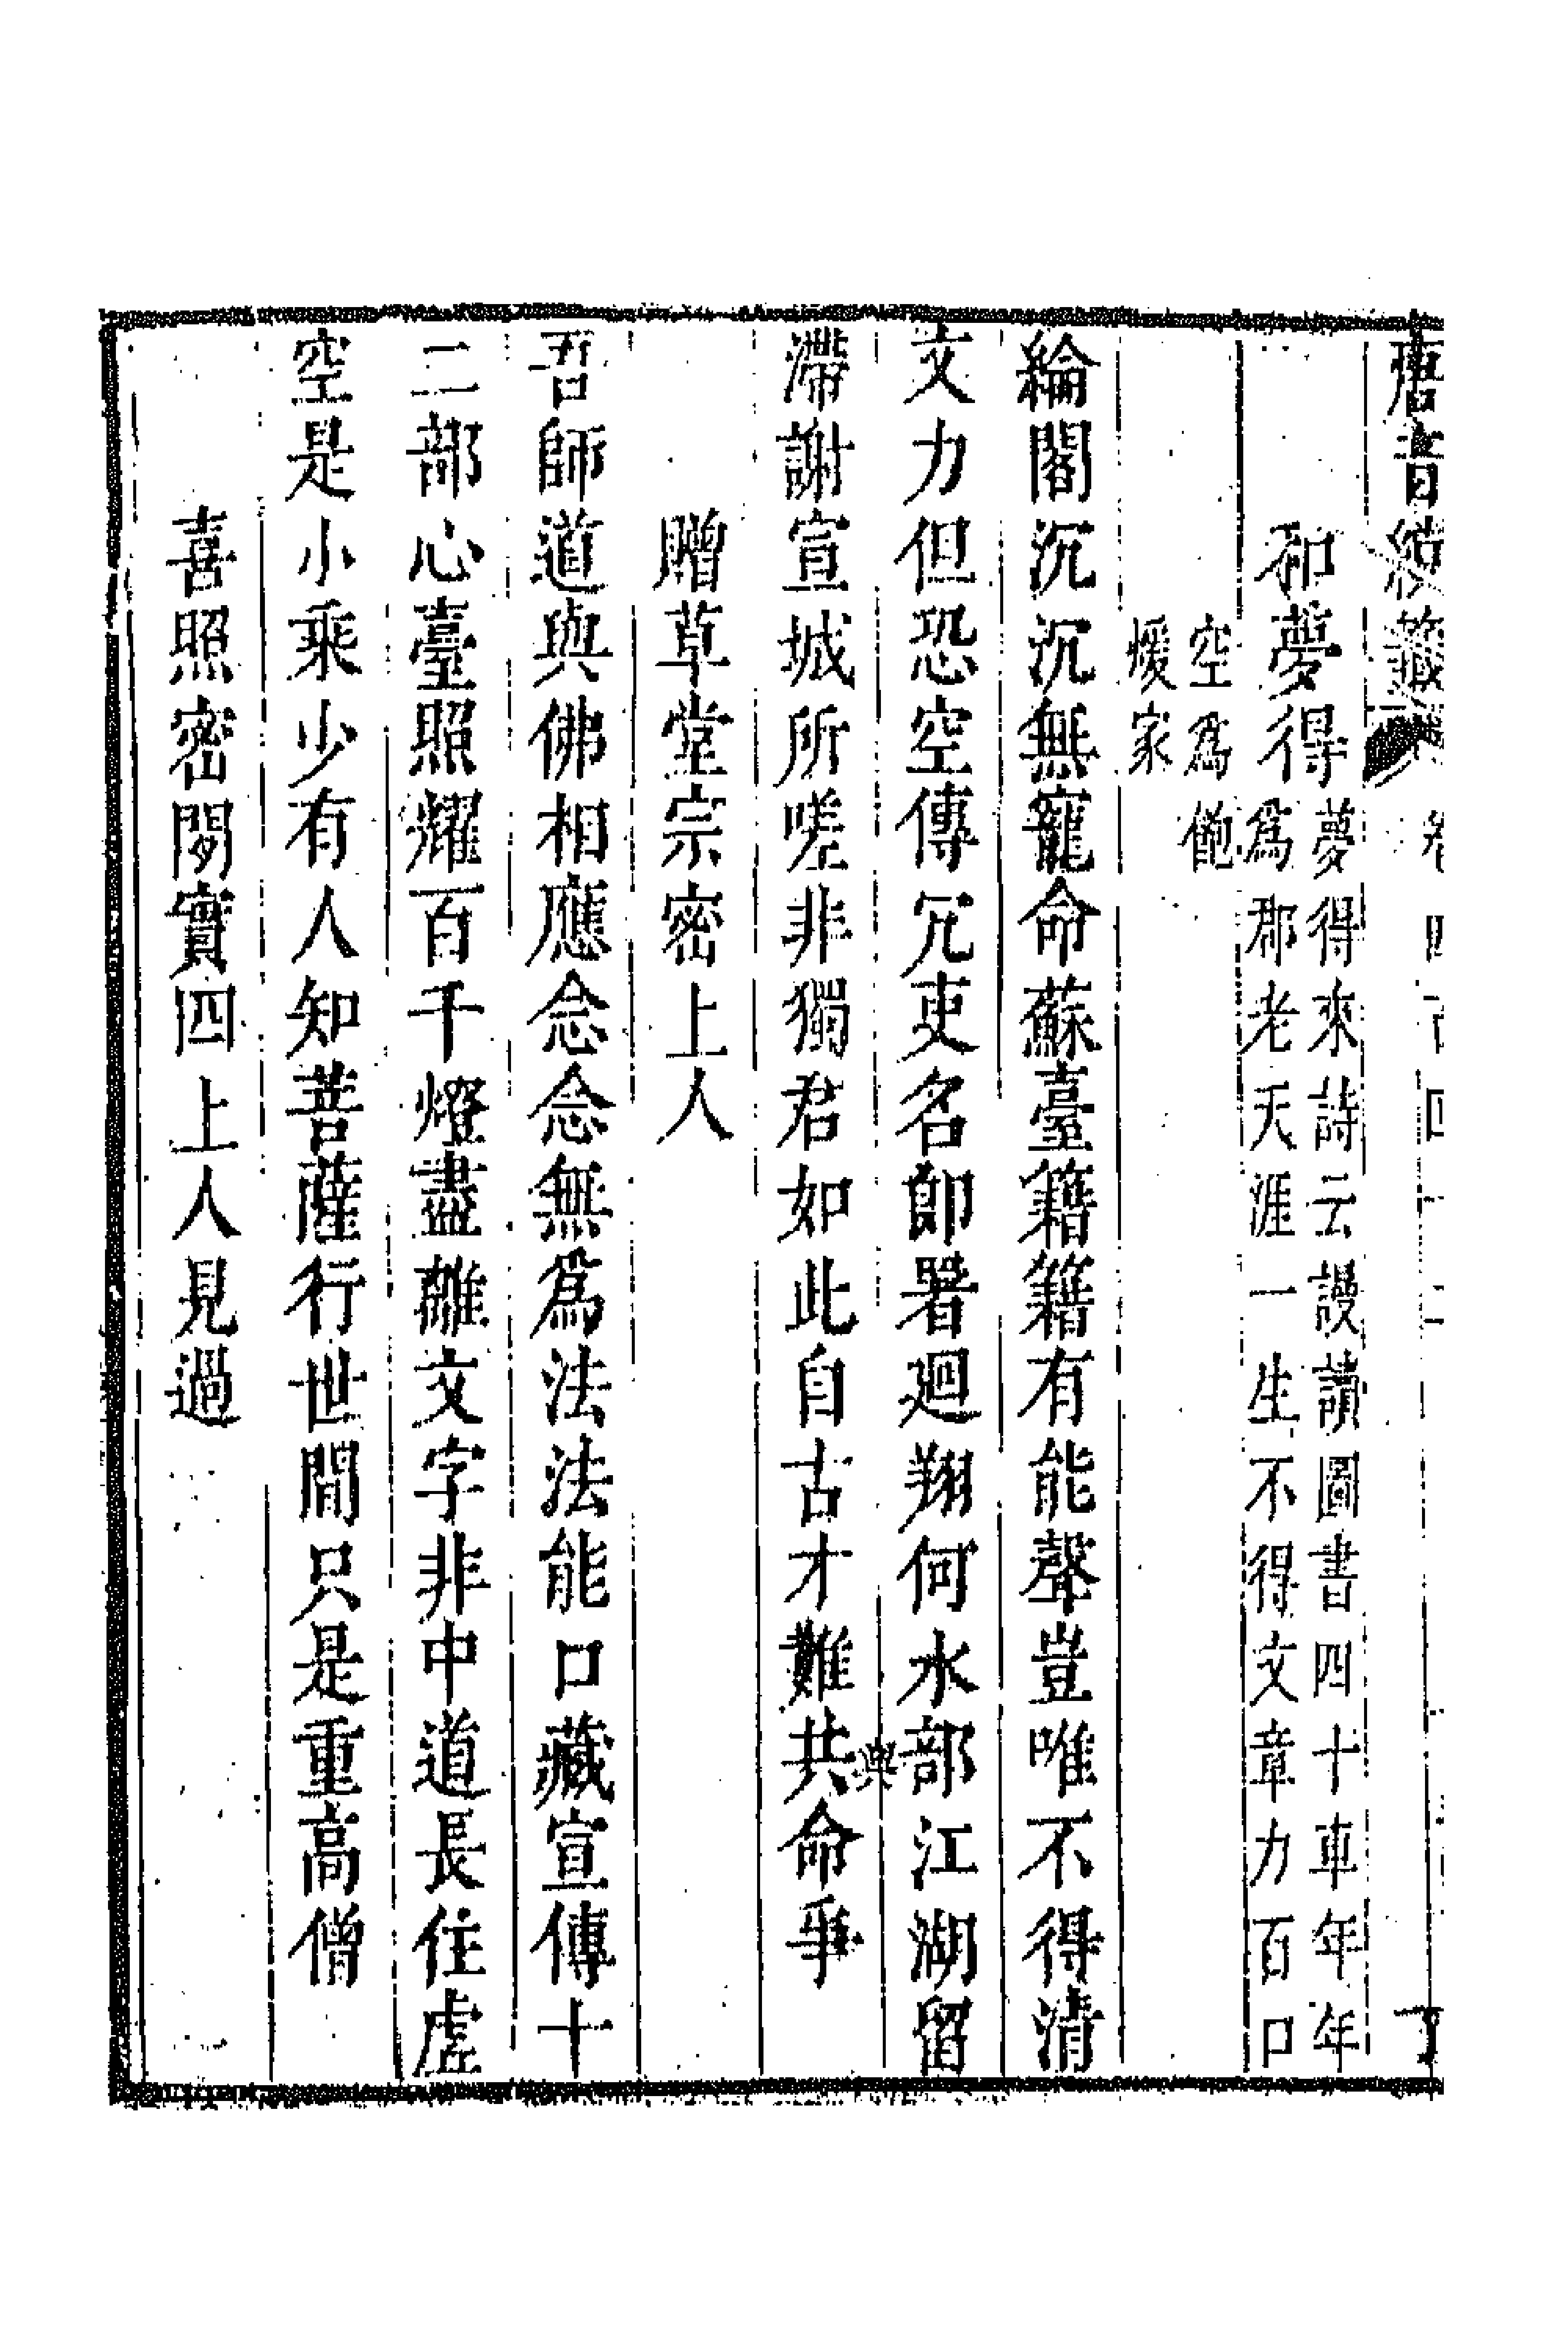 唐音統籤 卷四百四十二
和夢得
夢得來詩云謾讀圖書四十車年年
爲郡老天涯一生不得文章力百口
空爲飽
煖家
綸閣沉沉無寵命蘇臺籍籍有能聲豈唯不得清
文力但恐空傳冗吏名郎署廻翔何水部江湖留
滯謝宣城所嗟非獨君如此自古才難共命爭
與
贈草堂宗密上人
吾師道與佛相應念念無爲法法能口藏宣傳十
二部心臺照耀百千燈盡離文字非中道長住虛
空是小乘少有人知菩薩行世間只是重高僧
喜照密閑實四上人見過